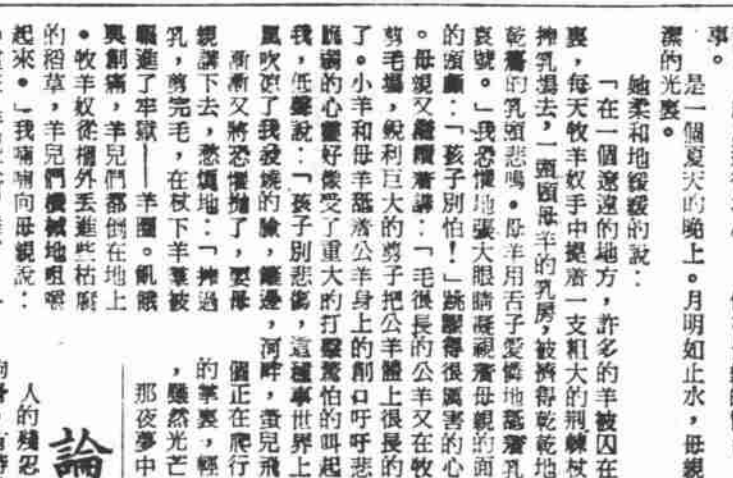 事。
是一個夏天的晚上。月明如止水，母親
潔的光裏。
她柔和地緩緩的說：
「在一個遼遠的地方，許多的羊被囚在
裏，每天牧羊奴手中提着一支粗大的荊棘杖
搾乳場去，一頭頭母羊的乳房，被擠得乾乾地
乾癟的乳頭悲鳴。母羊用舌子愛憐地舐着乳
哀號。」我恐懼地張大眼睛凝視着母親的面
的頭顱：「孩子別怕！」跳躍得很厲害的心
。母親又繼續着講：「毛很長的公羊又在牧
剪毛場，銳利巨大的剪子把公羊體上很長的
了。小羊和母羊舐着公羊身上的創口吁吁悲
脆弱的心靈好像受了重大的打擊驚怕的叫起
我，低聲說：「孩子別悲傷，這種事世界上
風吹涼了我發燒的臉，籬邊，河畔，螢兒飛
漸漸又將恐懼拋了，要母
親講下去，愁煩地：「搾過
乳，剪完毛，在杖下羊羣被
驅進了牢獄——羊圈。飢餓
與創痛，羊兒們都倒在地上
。牧羊奴從欄外丟進些枯腐
的稻草，羊兒們機械地咀嚼
起來。」我喃喃向母親說：
個正在爬行
的掌裏，輕
，雖然光芒
那夜夢中
論
人的殘忍